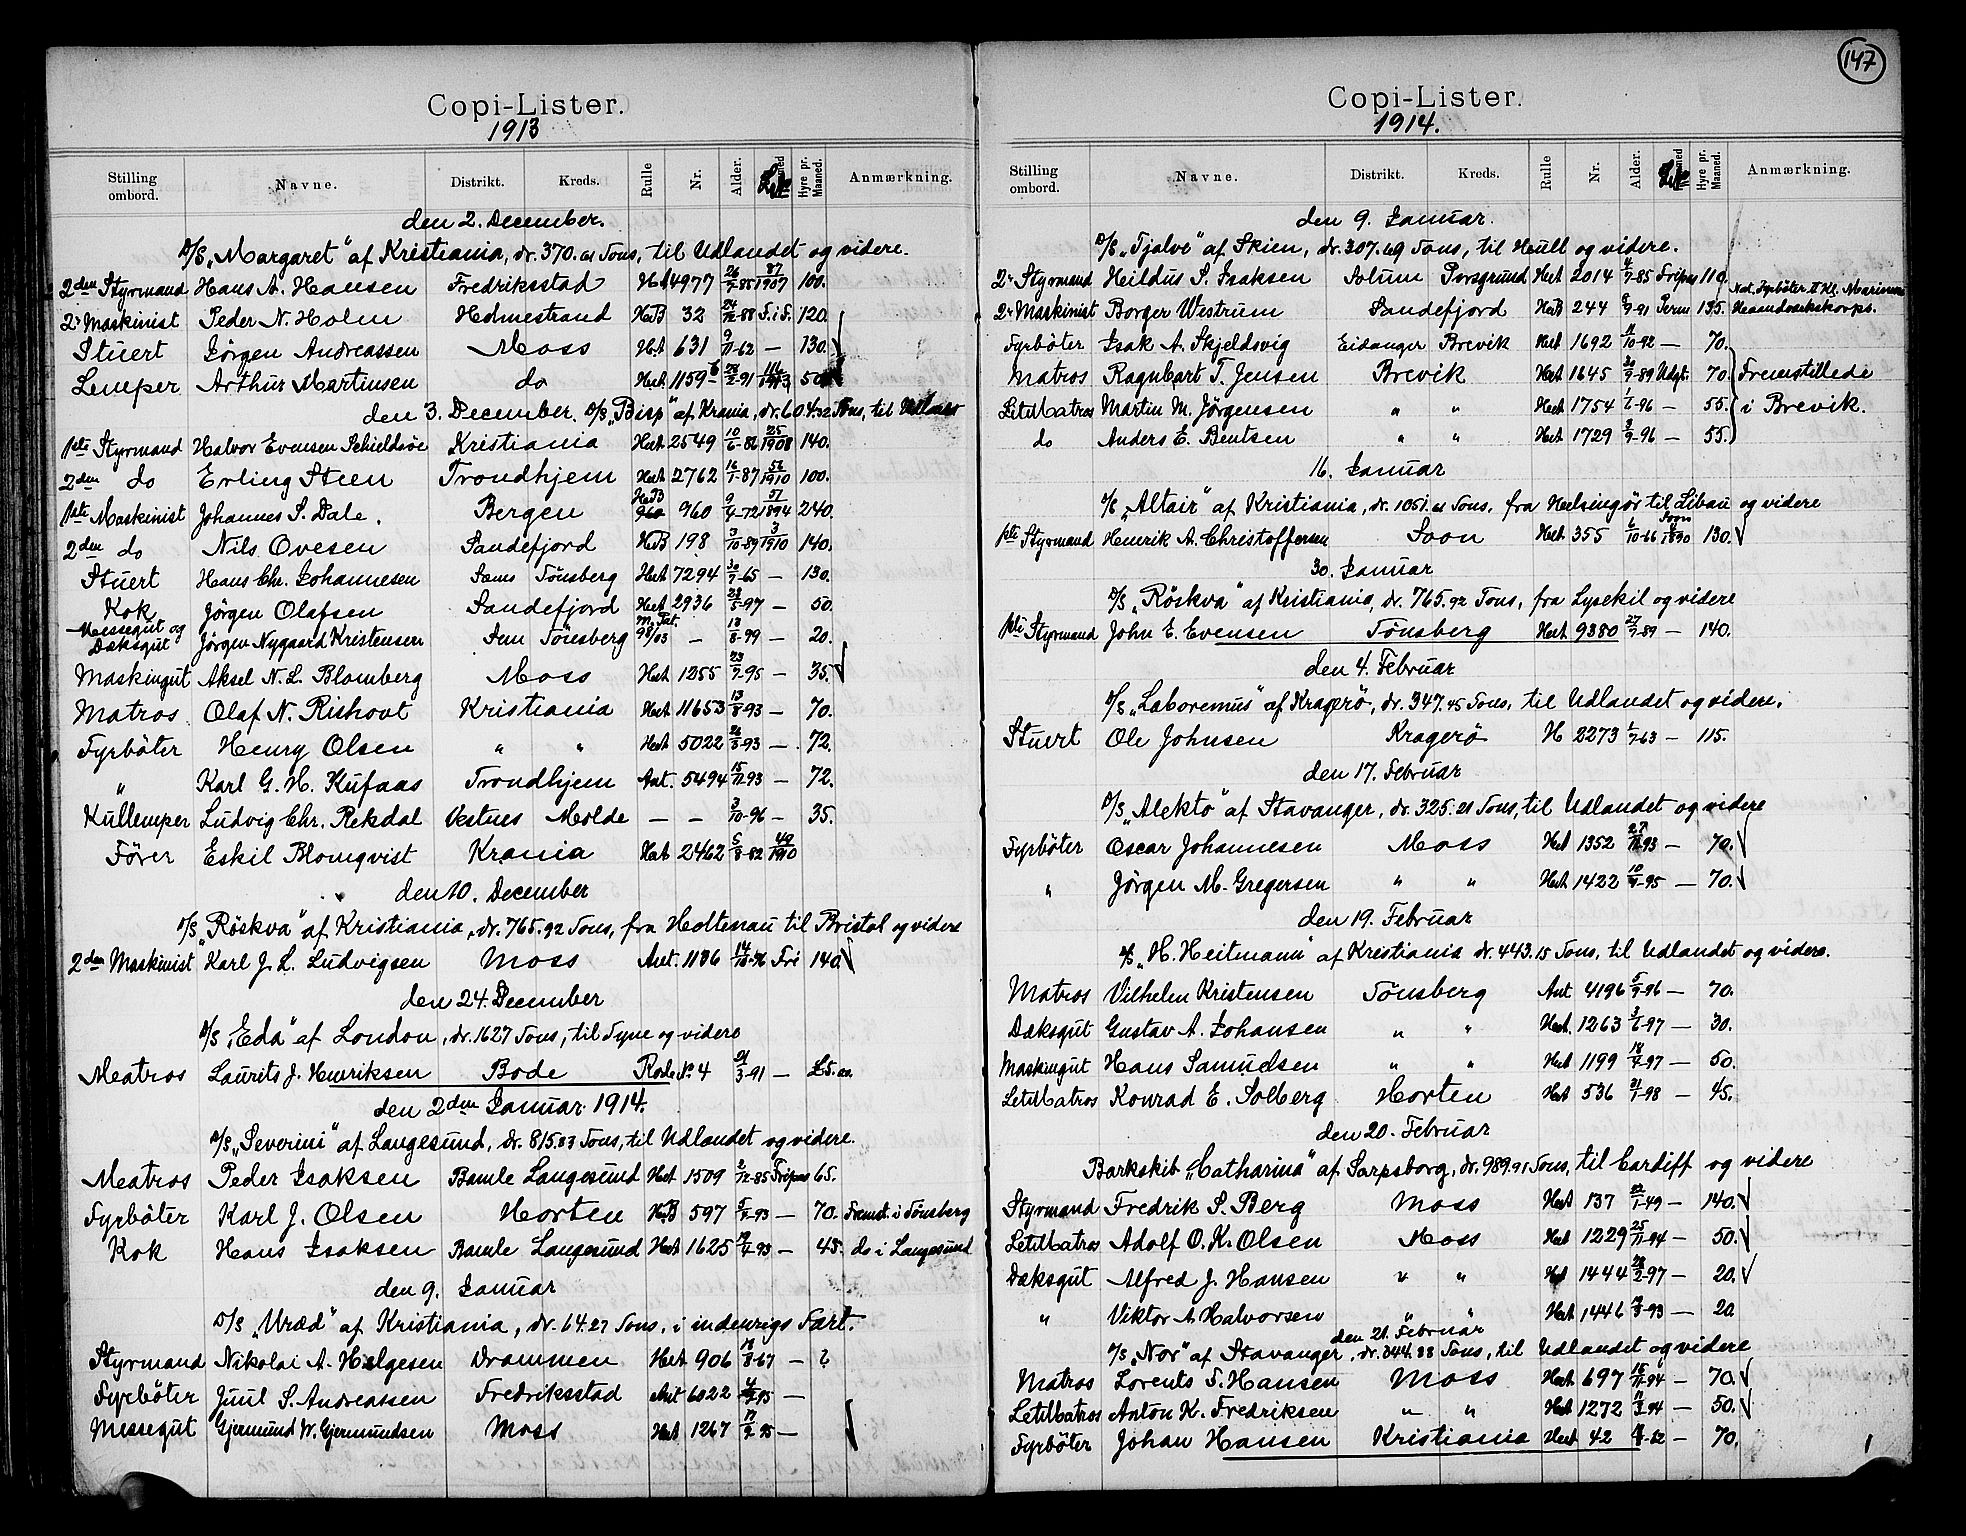 Copi-Lister.
1913
Stilling ombord. Navne. Distrikt. Kreds. Rulle Nr. Alder. Hyre pr. Maaned. Anmærkning.
den 2. December.
D/S „Margaret" af Kristiania, dr. 370.61 Tons, til Udlandet og videre.
2den Styrmand Hans A. Hansen Fredriksstad Hvd 4977 26/7-85 87/1907 100.
2. Maskinist Peder N. Holm Holmestrand HvB 32 24/12-88 F.i.S. 120.
Stuert Jörgen Andreassen Moss Hvd. 631 9/11-62 — 130.
Lemper Arthur Martinsen do Hvd. 1159 28/2-91 50
den 3. December. D/S „Bisp" af Krania, dr. 604.32 Tons, til Udlandet
1ste Styrmand Halvor Evensen Kristiania Hvd. 2549 10/6-82 25/1908 140.
2den do Erling Steen Trondhjem Hvd. 2762 16/1-87 56/1910 100.
1ste Maskinist Johannes S. Dale. Bergen HvB 960 9/4-72 37/1894 240.
2den do Nils Ovesen Sandefjord HvB 198 3/10-89 3/1910 140.
Stuert Hans Chr. Johannesen Sems Tönsberg Hvd. 7294 30/7-65 — 130.
Kok Jörgen Olafsen Sandefjord Hvd. 2936 28/5-97 — 50.
Messegut og Dæksgut Jörgen Nygaard Kristensen Sem Tönsberg 98/03 — 13/8-99 — 20.
Maskingut Aksel N. L. Blomberg Moss Hvd. 1255 23/7-95 — 35.
Matros Olaf N. Rishovt Kristiania Hvd. 11653 13/8-93 — 70.
Fyrböter Henry Olsen " " Hvd. 5022 26/3-93 — 72.
" Karl G. H. Kufaas Trondhjem Ant. 5494 15/12-93 — 72.
Kullemper Ludvig Chr. Rekdal Vestnes Molde — — 3/10-96 — 35.
Förer Eskil Blomqvist Krania Hvd. 2462 5/8-82 49/1910
den 10. December
D/S „Röskva" af Kristiania, dr. 765.92 Tons, fra Holtenau til Bristol og videre
2den Maskinist Karl J. L. Ludvigsen Moss Ant. 1186 14/10-76 Fri 140.
den 24. December
D/S „Eda" af London, dr. 1627 Tons, til Tyne og videre
Matros Laurits J. Henriksen Bodø Rode No 4 21/3-91 — £5.
den 2den Januar 1914.
D/S „Severin" af Langesund, dr. 815.83 Tons, til Udlandet og videre.
Matros Peder Isaksen Bamle Langesund Hvd. 1509 2/12-85 Fripas 65.
Fyrböter Karl J. Olsen Horten HvB 597 5/9-93 — 70. Fremst. i Tönsberg
Kok Hans Isaksen Bamle Langesund Hvd. 1625 19/4-93 — 45. do i Langesund
den 9. Januar
D/S „Uræd" af Kristiania, dr. 64.27 Tons, i indenrigs Fart.
Styrmand Nikolai A. Helgesen Drammen Hvd. 906 18/8-67 — ?
Fyrböter Juul S. Andreassen Fredriksstad Ant 6022 -95 —
Messegut Gjermund W. Gjermundsen Moss Hvd. 1267 17/2-95 —
147
Copi-Lister.
1914.
Stilling ombord. Navne. Distrikt. Kreds. Rulle Nr. Alder. Hyre pr. Maaned. Anmærkning.
den 9. Januar.
D/S „Tjalve" af Skien, dr. 307.69 Tons, til Hull og videre.
2. Styrmand Heildus S. Isaksen Solum Porsgrund Hvd. 2014 4/7-85 Fripas 110.
2. Maskinist Borger Westrum Sandefjord HvB 244 6/9-91 Perm 135. Not. Fyrböter II Kl. Marinens Haandværkskorps.
Fyrböter Isak A. Skjeldsvig Eidanger Brevik Hvd. 1692 11/10-92 — 70.
Matros Ragnbart T. Jensen Brevik Hvd. 1645 30/9-89 Udgt. 70. Fremstillede
LetMatros Martin M. Jörgensen " " Hvd. 1754 1/6-96 — 55. i Brevik.
do Anders E. Bentsen " " Hvd. 1729 3/9-96 — 55.
16. Januar
D/S „Altair" af Kristiania, dr. 1051.61 Tons, fra Helsingör til Libau og videre
1ste Styrmand Henrik A. Christoffersen Soon Hvd. 355 6/10-66 Soon 1890 130.
30. Januar
D/S „Röskva" af Kristiania, dr. 765.92 Tons, fra Lysekil og videre
1ste Styrmand John E. Evensen Tönsberg Hvd. 9380 27/7-89 — 140.
den 4. Februar
D/S „Laboremus" af Kragerö, dr. 347.45 Tons, til Udlandet og videre.
Stuert Ole Johnsen Kragerö H 2273 1/7-63 — 115.
den 17. Februar
D/S „Alekto" af Stavanger, dr. 325.21 Tons, til Udlandet og videre
Fyrböter Oscar Johannesen Moss Hvd 1352 27/12-93 — 70.
" Jörgen M. Gregersen " " Hvd. 1422 10/9-95 — 70.
den 19. Februar
D/S „H. Heitmann" af Kristiania dr. 443.15 Tons, til Udlandet og videre.
Matros Vilhelm Kristensen Tönsberg Ant 4196 5/9-96 — 70.
Dæksgut Gustav A. Johansen " " Hvd. 1263 3/6-97 — 30.
Maskingut Hans Samudsen " " Hvd. 1199 18/9-97 — 50.
LetMatros Konrad E. Solberg Horten Hvd. 536 21/1-98 — 45.
den 20. Februar
Barkskib „Catharina" af Sarpsborg, dr. 989.91 Tons, til Cardiff og videre
Styrmand Fredrik S. Berg Moss Hvd 137 22/1-49 — 140.
LetMatros Adolf O. K. Olsen Moss Hvd 1229 25/11-94 — 50.
Dæksgut Alfred J. Hansen " " Hvd 1444 28/2-97 — 20.
" Viktor A Halvorsen " " Hvd. 1446 -93 — 20.
den 21. Februar
D/S „Nor" af Stavanger, dr. 344.88 Tons, til Udlandet og videre
Matros Lorents F. Hansen Moss Hvd. 697 15/11-94 — 70.
LetMatros Anton K. Fredriksen " " Hvd 1272 -94 — 50.
Fyrböter Johan Hansen Kristiania Hvd 42 -62 — 70.